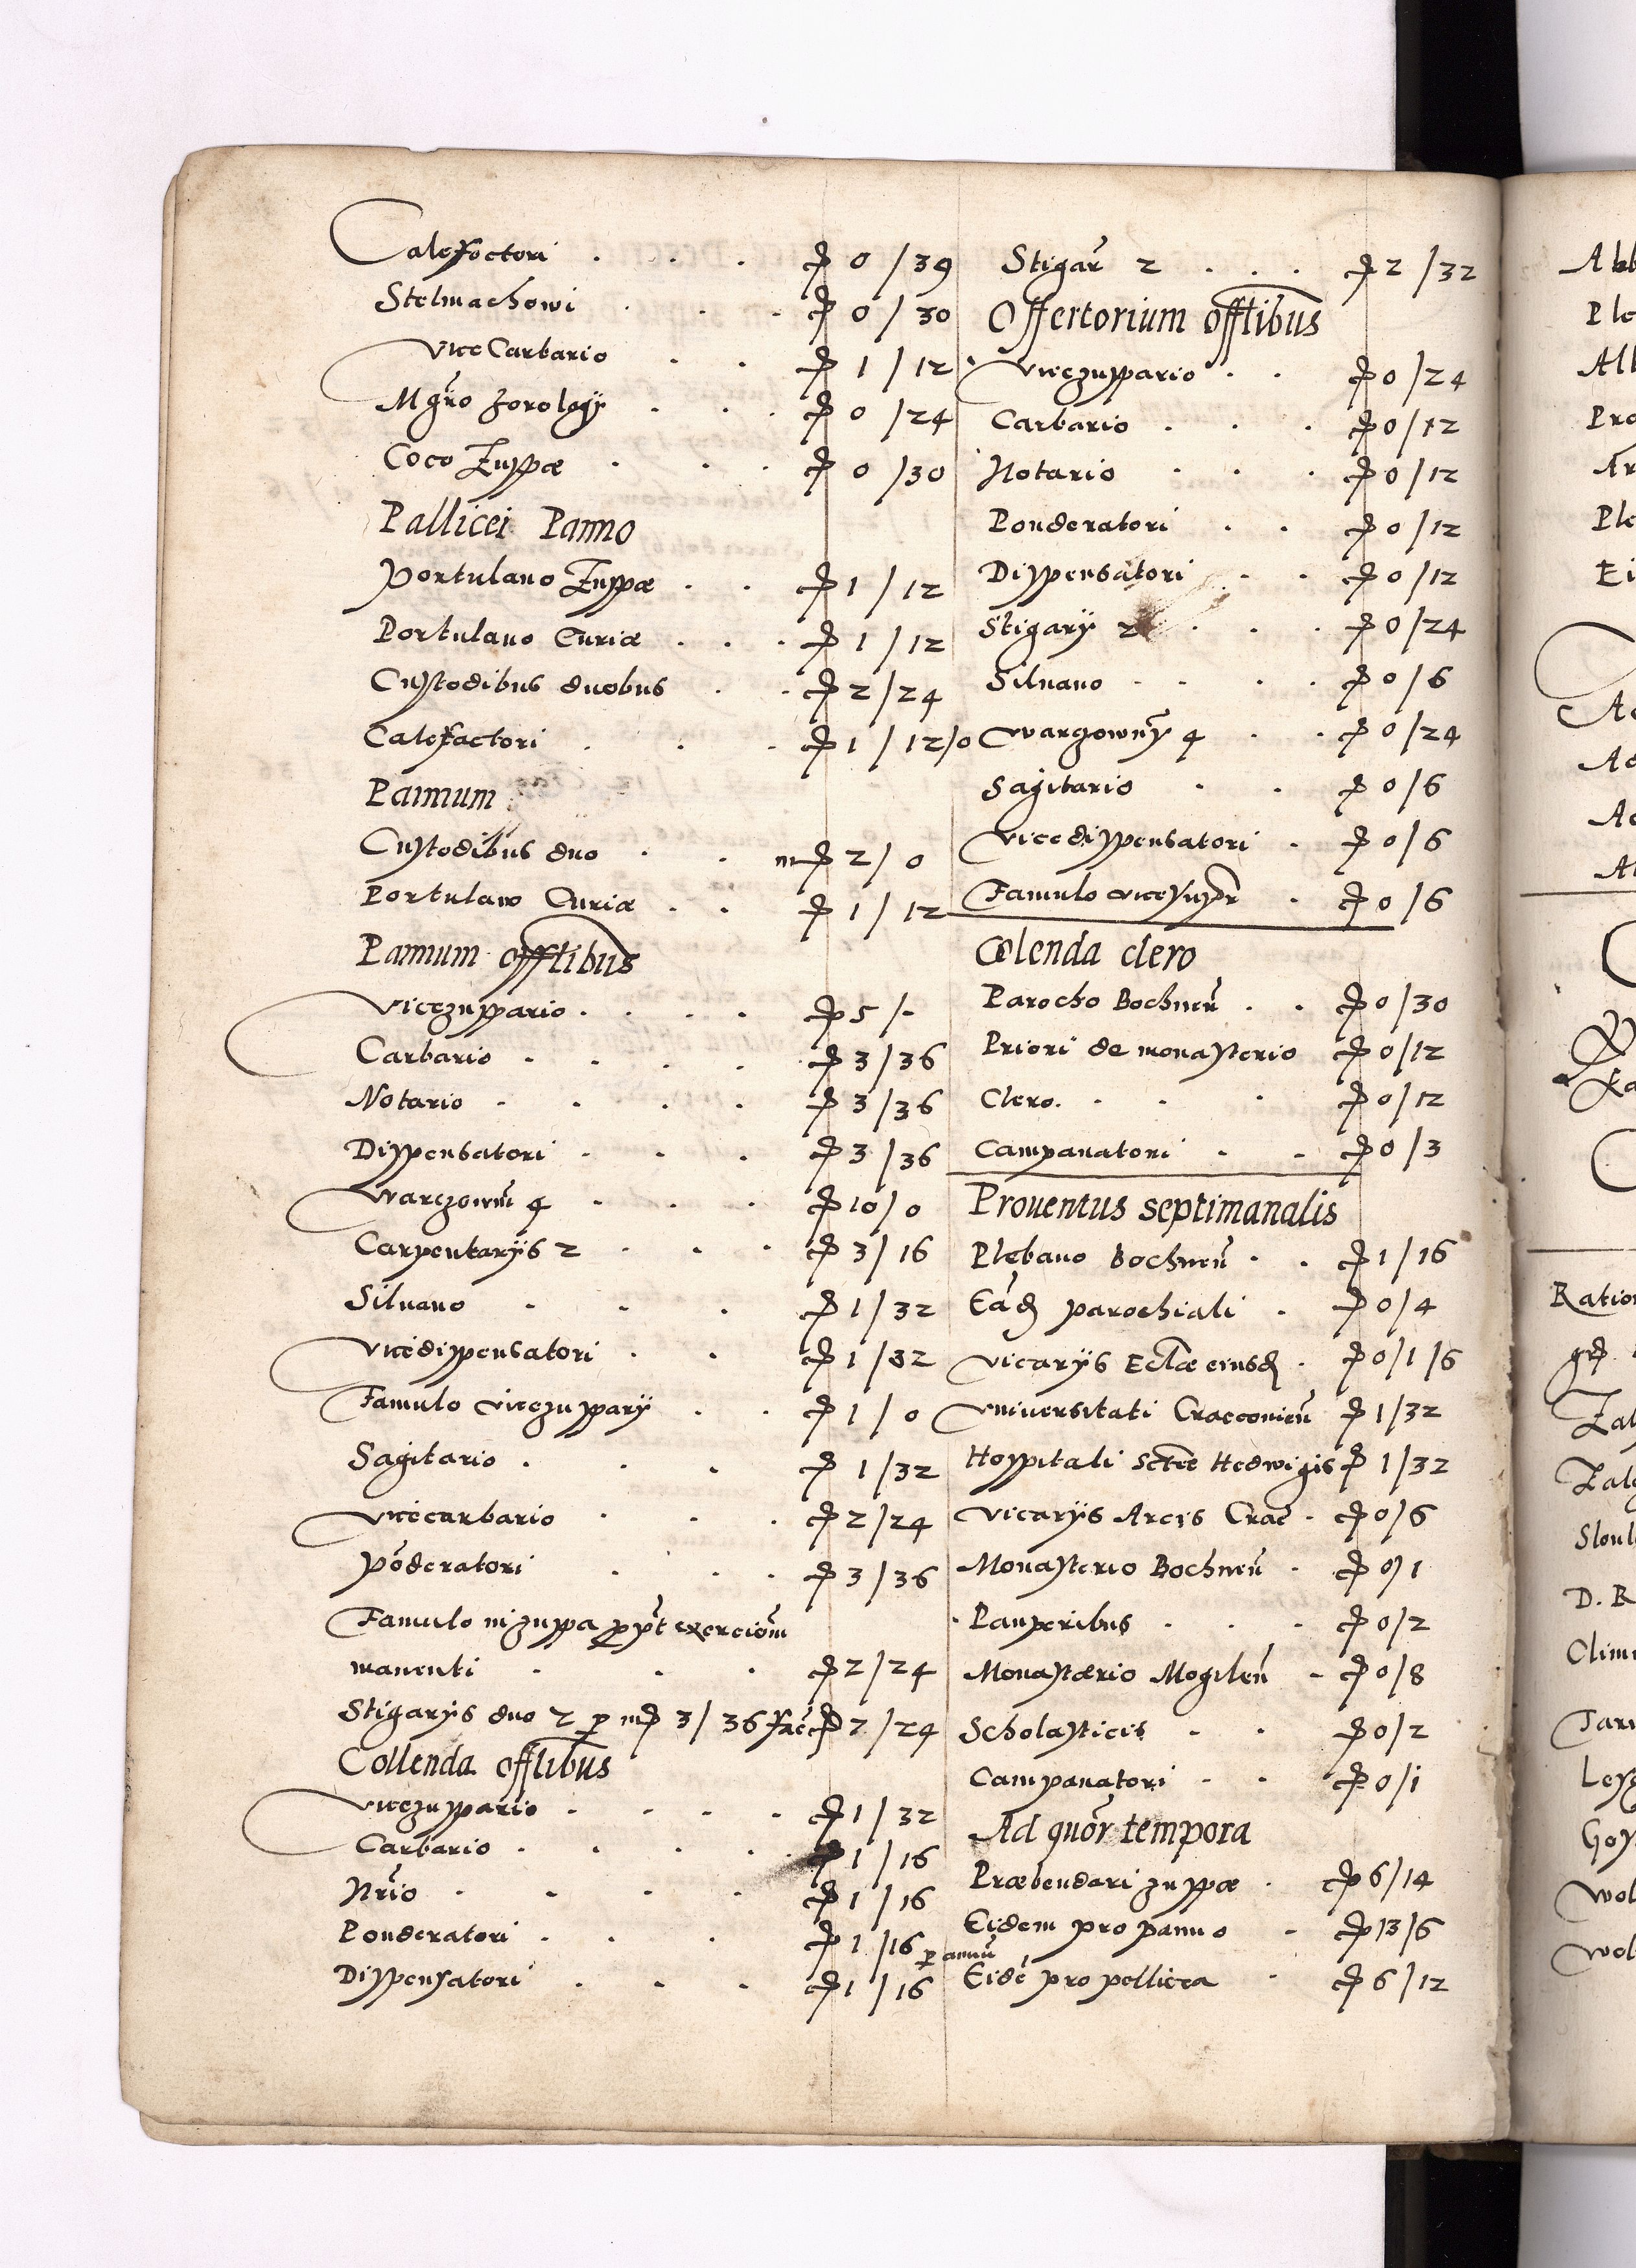 Calefactori . . . ꝑ 0 / 39
Stelmachowi . . . ꝑ 0 / 30
Vice Carbario . . ꝑ 1 / 12
Mgr̃o Zorology . . . ꝑ 0 / 24
Coco Zuppæ . . . ꝑ 0 / 30
Pallicei Panno
Portulano Zuppæ . . ꝑ 1 / 12
Portulano Curiæ . . . ꝑ 1 / 12
Custodibus duobus . . ꝑ 2 / 24
Calefactori . . . ꝑ 1 / 12/0
Pannum
Custodibus duo . . mꝑ 2 / 0
Portulano Curiæ . . ꝑ 1 / 12
Pannum offtibus
Vicezuppario . . . . ꝑ 5 / -
Carbario . . . . ꝑ 3 / 36
Notario . . . . ꝑ 3 / 36
Dispensatori . . . ꝑ 3 / 36
Warczowm̃ 4 . . . ꝑ 10 / 0
Carpentarijs 2 . . . ꝑ 3 / 16
Siluano . . . ꝑ 1 / 32
Vicedispensatori . . ꝑ 1 / 32
Famulo vicezuppary . . ꝑ 1 / 0
Sagitario . . . ꝑ 1 / 32
Vicecarbario . . . ꝑ 2 / 24
Põderatori . . . ꝑ 3 / 36
Famulo in zuppa
manenti . . . ꝑ 2 / 24
Stigarys duo 2 ꝑ mꝑ 3 / 36 fac̃ ꝑ 7 / 24
Collenda offlibus
Vicezuppario . . . . ꝑ 1 / 32
Carbario . . . . . ꝑ 1 / 16
Nr̃io . . . . ꝑ 1 / 16
Ponderatori . . . ꝑ 1 / 16
Dispensatori . . . ꝑ 1 / 16
Stigar̃ 2 . . . ꝑ 2 / 32
Offertorium offtibus
Vicezuppario . . ꝑ 0 / 24
Carbario . . . ꝑ 0 / 12
Notario . . . ꝑ 0 / 12
Ponderatori . . ꝑ 0 / 12
Dispensatori . . ꝑ 0 / 12
Stigary 2 . . . ꝑ 0 / 24
Siluano . . . . ꝑ 0 / 6
Warzowny 4 . . ꝑ 0 / 24
Sagitario . . ꝑ 0 / 6
Vicedispensatori . ꝑ 0 / 6
Famulo vicezupp̃r . ꝑ 0 / 6
Colenda clero
Parocho Bochneñ . . ꝑ 0 / 30
Priori de monasterio ꝑ 0 / 12
Clero . . . ꝑ 0 / 12
Campanatori . . ꝑ 0 / 3
Prouentus septimanalis
Plebano Bochneñ . . ꝑ 1 / 16
parochiali . ꝑ 0 / 4
Vicarijs Ecl̃æ eiusd . ꝑ 0 / 1 / 6
Vniuersitati Cracouieñ ꝑ 1 / 32
Hospitali Sctæ Hedwigis ꝑ 1 / 32
Vicarijs Arcis Crac̃ . ꝑ 0 / 6
Monasterio Bochneñ . ꝑ 0 / 1
Pauperibus . . . ꝑ 0 / 2
Monastærio Mogileñ - ꝑ 0 / 8
Scholasticis . . ꝑ 0 / 2
Campanatori . . ꝑ 0 / 1
Ad quõr tempora
Præbendari zuppæ . ꝑ 6 / 14
Eidem pro panno . ꝑ 13 / 6
ꝑ annũ
Eidẽ pro pellicea . ꝑ 6 / 12